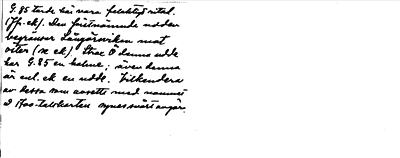 G.85 torde här vara felaktigt ritat.
(Jfr. ek). Den förstnämnde udden
begränsar Långörsviken mot
öster (se ek). Strax Ö denna udde
har G.85 en holme; även denna
är enl. ek en udde. Vilkendera
av dessa som avsetts med namnet
å 1700-talskartan synes svårt avgör.